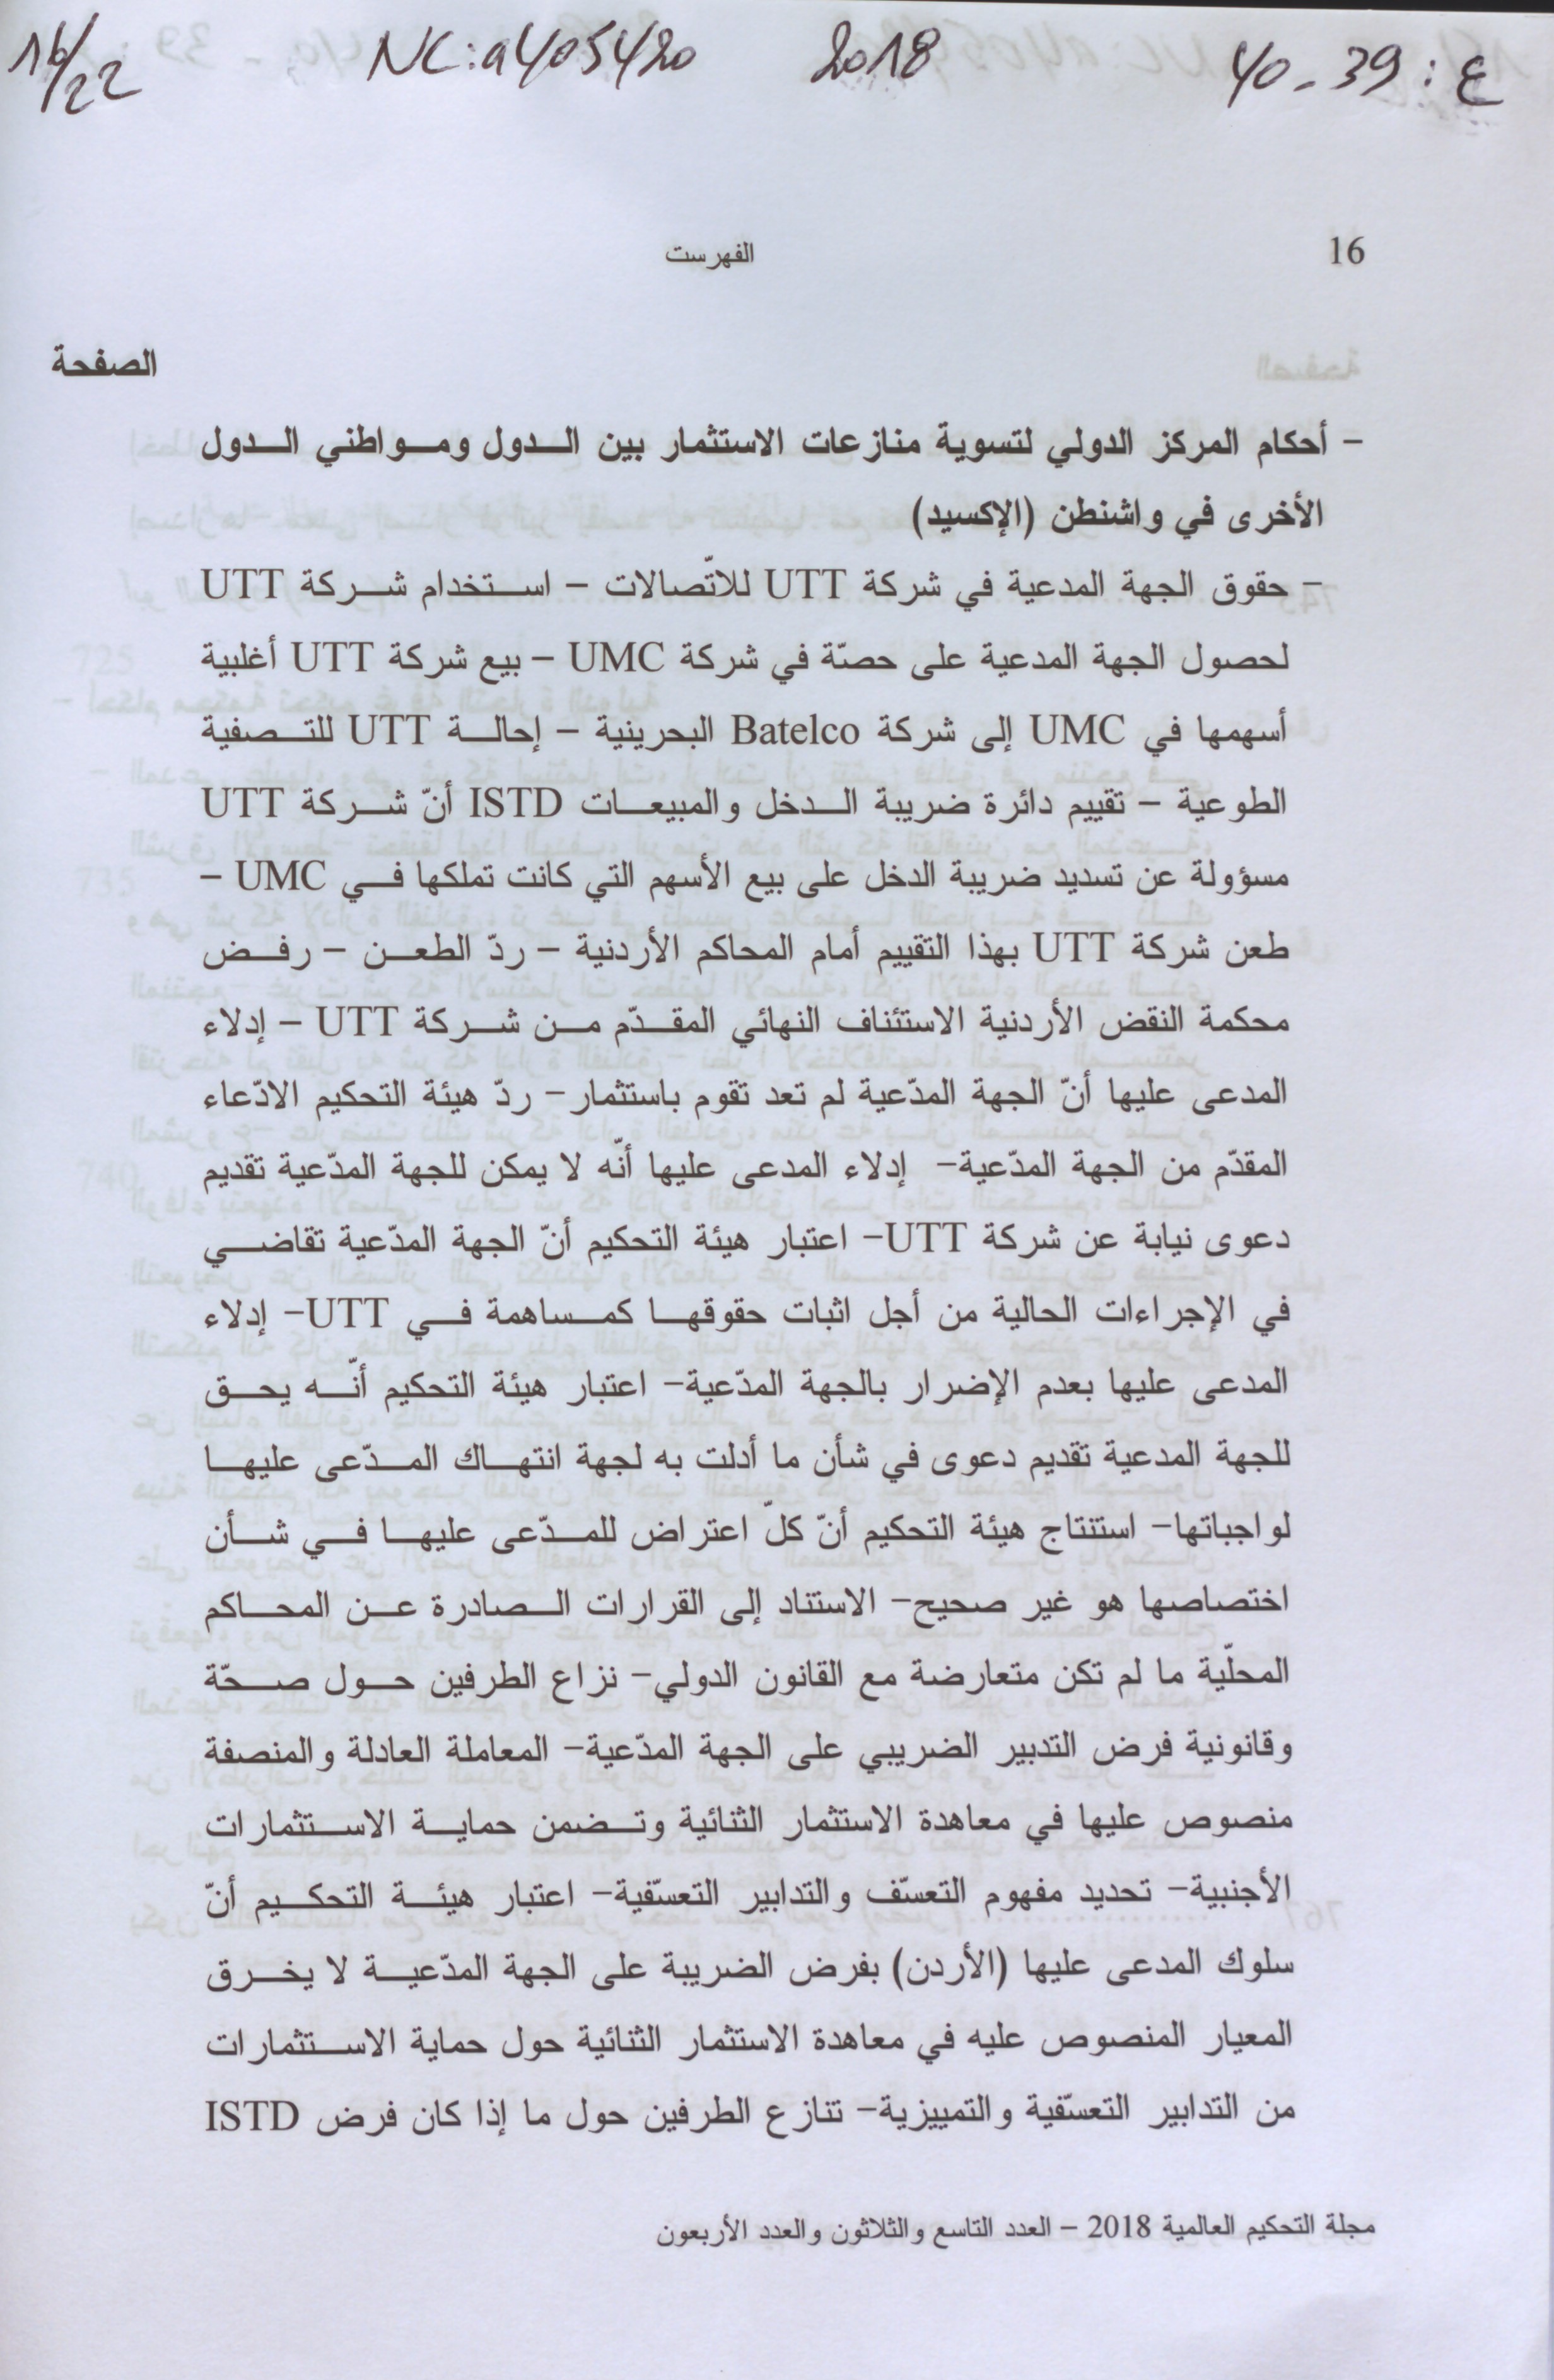 ع : 39 - 40 2018 NC: a405420 16/22
16 الفهرست
الصفحة
– أحكام المركز الدولي لتسوية منازعات الاستثمار بين الدول ومواطني الدول
الأخرى في واشنطن (الإكسيد)
– حقوق الجهة المدعية في شركة UTT للاتّصالات – استخدام شركة UTT
لحصول الجهة المدعية على حصّة في شركة UMC – بيع شركة UTT أغلبية
أسهمها في UMC إلى شركة Batelco البحرينية – إحالة UTT للتصفية
الطوعية – تقييم دائرة ضريبة الدخل والمبيعات ISTD أنّ شركة UTT
مسؤولة عن تسديد ضريبة الدخل على بيع الأسهم التي كانت تملكها في UMC –
طعن شركة UTT بهذا التقييم أمام المحاكم الأردنية – ردّ الطعن – رفض
محكمة النقض الأردنية الاستئناف النهائي المقدّم من شركة UTT – إدلاء
المدعى عليها أنّ الجهة المدّعية لم تعد تقوم باستثمار– ردّ هيئة التحكيم الادّعاء
المقدّم من الجهة المدّعية– إدلاء المدعى عليها أنّه لا يمكن للجهة المدّعية تقديم
دعوى نيابة عن شركة UTT– اعتبار هيئة التحكيم أنّ الجهة المدّعية تقاضي
في الإجراءات الحالية من أجل اثبات حقوقها كمساهمة في UTT– إدلاء
المدعى عليها بعدم الإضرار بالجهة المدّعية– اعتبار هيئة التحكيم أنّه يحق
للجهة المدعية تقديم دعوى في شأن ما أدلت به لجهة انتهاك المدّعى عليها
لواجباتها– استنتاج هيئة التحكيم أنّ كلّ اعتراض للمدّعى عليها في شأن
اختصاصها هو غير صحيح– الاستناد إلى القرارات الصادرة عن المحاكم
المحلّية ما لم تكن متعارضة مع القانون الدولي– نزاع الطرفين حول صحّة
وقانونية فرض التدبير الضريبي على الجهة المدّعية– المعاملة العادلة والمنصفة
منصوص عليها في معاهدة الاستثمار الثنائية وتضمن حماية الاستثمارات
الأجنبية– تحديد مفهوم التعسّف والتدابير التعسّفية– اعتبار هيئة التحكيم أنّ
سلوك المدعى عليها (الأردن) بفرض الضريبة على الجهة المدّعية لا يخرق
المعيار المنصوص عليه في معاهدة الاستثمار الثنائية حول حماية الاستثمارات
من التدابير التعسّفية والتمييزية– تنازع الطرفين حول ما إذا كان فرض ISTD
مجلة التحكيم العالمية 2018 – العدد التاسع والثلاثون والعدد الأربعون